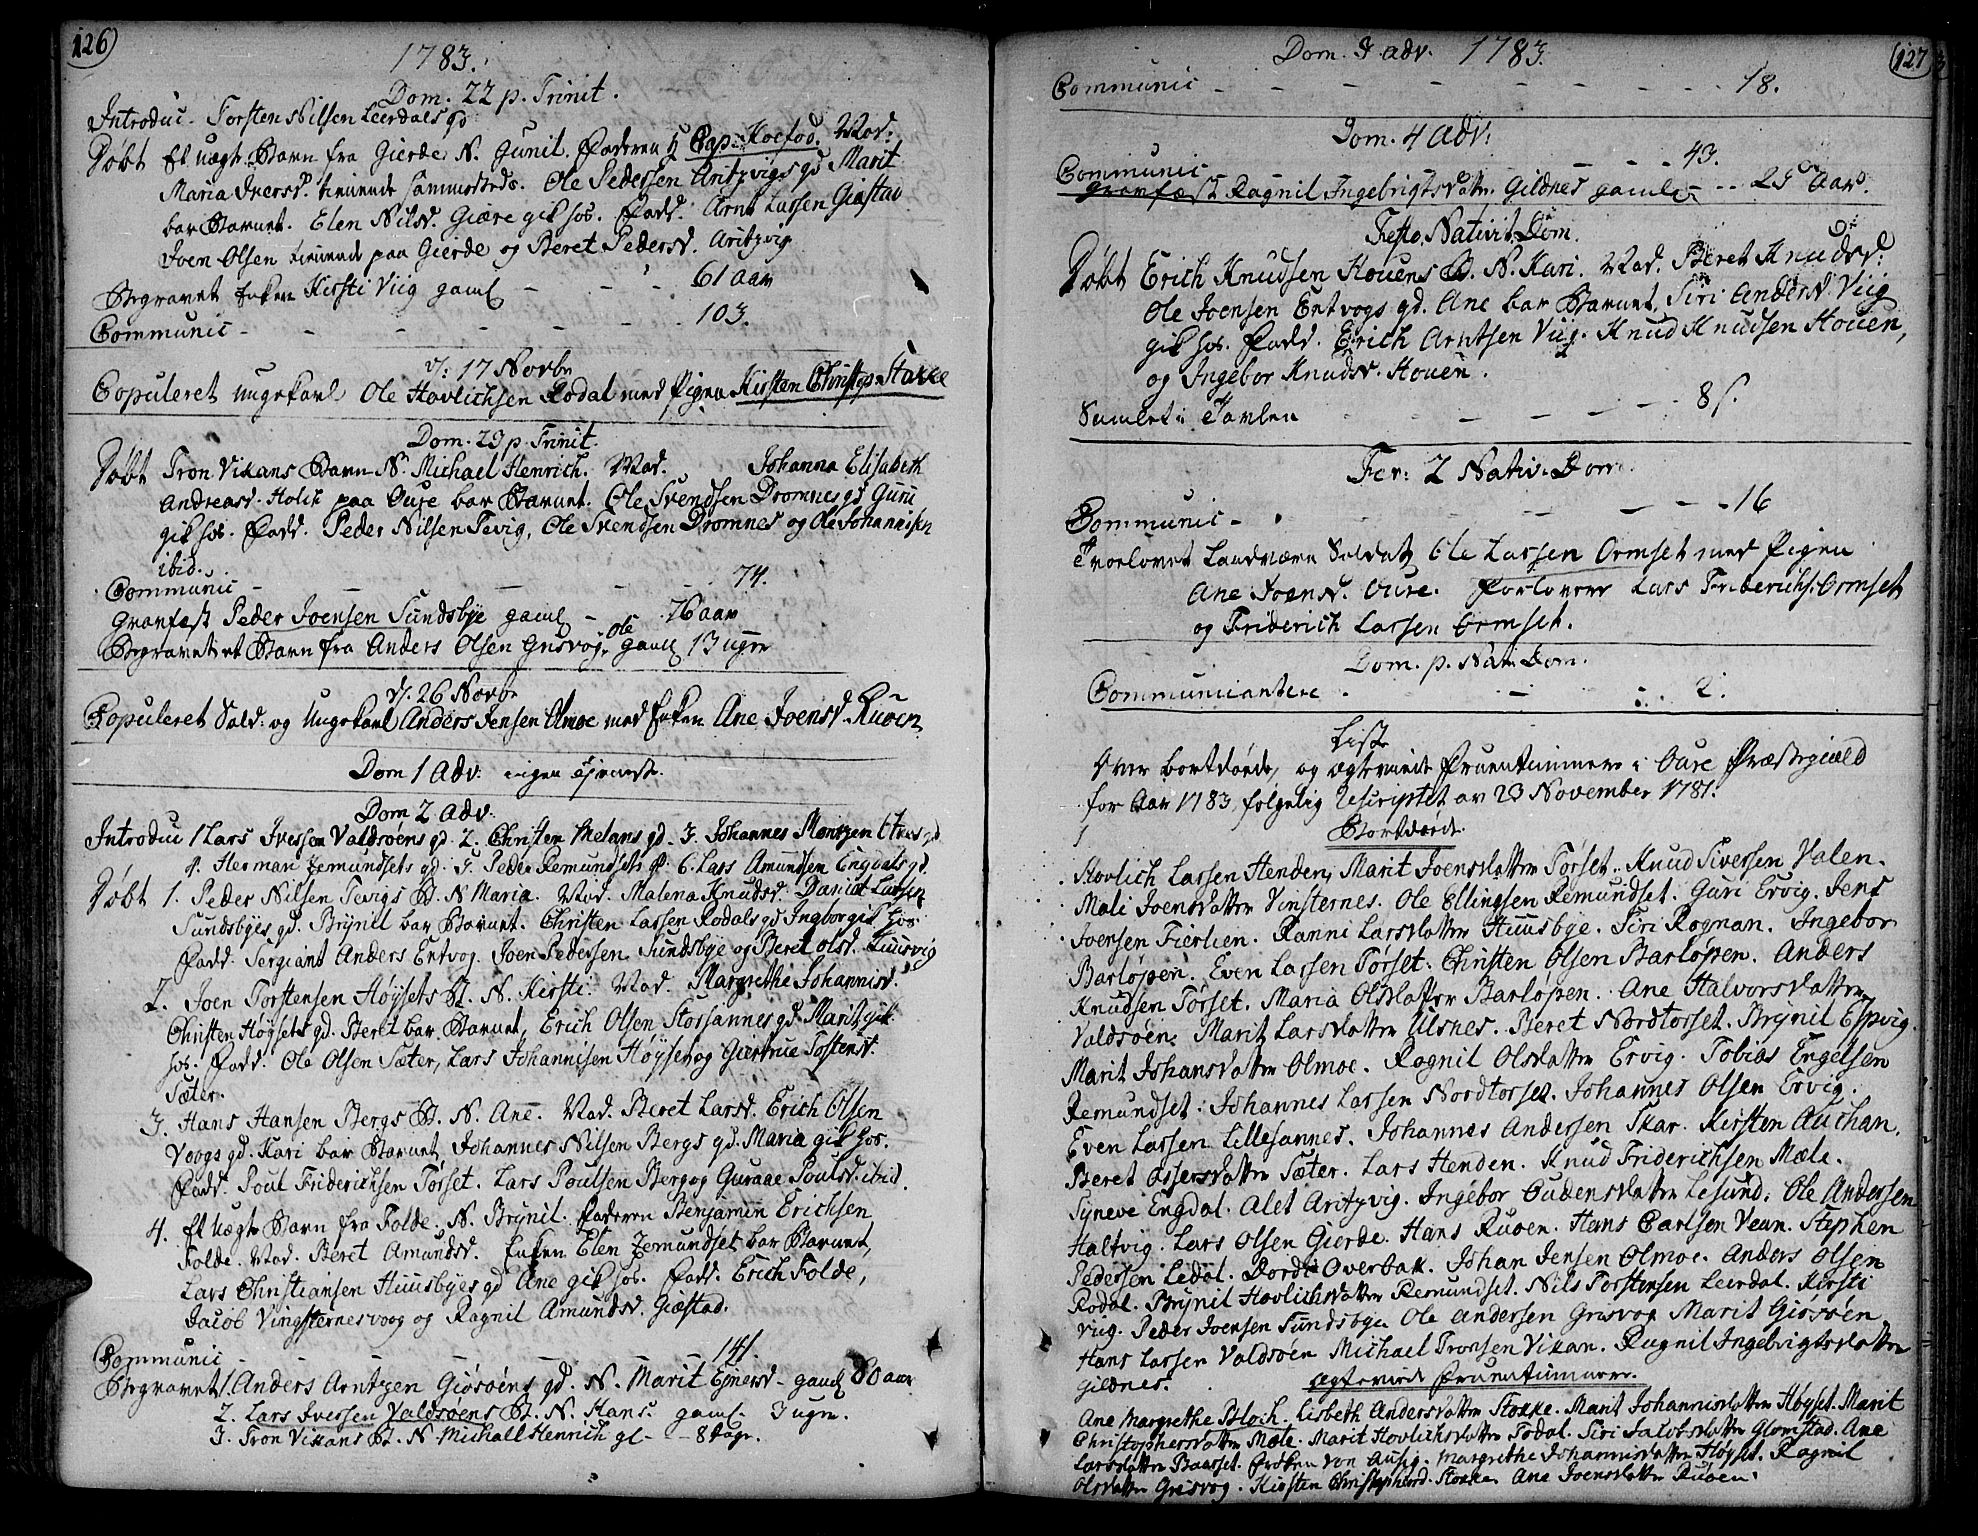 126
1783.
Dom. 22 p. Trinit.
Introduc. Torsten Nilsen Leerdals gd
Døbt Et Uægt. Barn fra Gierde N. Gunil. Faderen Cap. Koefod. Mod.
Maria Iversd. tienende sammesteds. Ole Pedersen Aritzvigs gd Marit
bar Barnet. Elen Nilsd. Giære gik hos. Fadd. Arnt Larsen Giøstad
Joen Olsen tienende paa Gierde og Beret Pedersd. Aritzvig
Begravet Enken Kirsti Viig gaml - - - 61 aar
Communic - - - - - - 103.
d. 17 Novbr
Copuleret ungekarl Ole Hovlichsen Rodal med Pigen Kirsten Christophersd. Stokke
Dom. 23 p. Trinit.
Døbt Tron Vikans Barn N. Michael Henrich. Mod. Johanna Elisabeth
Andreasd. Holck paa Oure bar Barnet. Ole Svendsen Dromnes gd Guru
gik hos. Fadd. Peder Nilsen Tevig, Ole Svendsen Dromnes og Ole Johannisen
ibid.
Communic - - - - - 74.
Gravfæst Peder Joensen Sundsbye gaml - 76 aar
Begravet et Barn fra Anders Olsen Grisvog. Ole gaml 13 uger
d. 26 Novbr
Copuleret Sold. og Ungekarl Anders Jensen Olmoe med Enken Ane Joensd. Ruøen
Dom 1 Adv. ingen tieneste.
Dom 2 Adv.
Introduc 1 Lars Iversen Valdsøens gd. 2. Christen Melans gd. 3. Johannes Mortzen
4. Herman Remundsets gd. 5. Peder Remundsets gd. 6. Lars Amundsen Engdals gd.
Døbt 1. Peder Nilsen Tevigs B. N. Maria. Mod. Malena Knudsd. Daniel Larsen
Sundsbyes gd. Brynil bar Barnet. Christen Larsen Rodals gd Ingbor gik hos
Fadd. Sergiant Anders Entvog. Joen Pedersen Sundsbye og Beret Olsd. Kuusvig
2. Joen Torstensen Høysets B. N. Kirsti. Mod. Margrethe Johannisd.
Christen Høysets gd. Beret bar Barnet, Erich Olsen Storsannes gd. Marit gik
hos. Fadd. Ole Olsen Sæter, Lars Johannisen Høyset og Giertrue Tostensd.
Sæter.
3. Hans Hansen Bergs B. N. Ane. Mod. Beret Larsd. Erich Olsen
Voogs gd. Kari bar Barnet, Johannes Nilsen Bergs gd. Maria gik hos.
Fadd. Poul Friderichsen Torset. Lars Poulsen Berg og Guraae Poulsd. ibid.
4. Et Uægt Barn fra Folde. N. Brynil. Faderen Benjamin Erichsen
Folde. Mod. Beret Amundsd. Enken Elen Remundset bar Barnet,
Lars Christiansen Huusbyes gd Ane gik hos. Fadd. Erich Folde,
Jacob Vingsternesvoog og Ragnil Amundsd. Giøstad.
Communic - - - - - - 141.
Begravet 1. Anders Arntzen Giøsøens gd. N. Marit Ejnersd - gaml 80 aar
2. Lars Iversen Valdsøens B. N. Hans. gaml. 3 uger.
3. Tron Vikans B. N. Michall Henrich gl - - 8 Dage.
127
Dom. 3 adv. 1783.
Communic - - - - - - - - 18.
Dom. 4 Adv.
Communic - - - 43.
Gravfæst Ragnil Ingebrigtsdatter Gildnes gamle - - 25 Aar.
Festo Nativit. Dom.
Døbt Erich Knudsen Houens B. N. Kari. Mod. Beret Knudsd.
Ole Joensen Entvogs gd. Ane bar Barnet, Siri Andersd Viig
gik hos. Fadd. Erich Arntsen Viig. Knud Knudsen Houen,
og Ingebor Knudsd. Houen.
Samlet i Tavlen - - - - - 8 s.
Fer: 2 Nativ. Dom.
Communic - - - - - 16
Trolovet Landværn Soldat Ole Larsen Ormset med Pigen
Ane Joensd. Oure. Forlovere Lars Friderichs. Ormset
og Friderich Larsen Ormset.
Dom. p. Nat. Dom.
Communicantere - - - 2.
List
Over bortdøde, og ægteviede Fruentimmere i Oure Præstegield
for Aar 1783, følgelig Rescriptet av 23 November 1781.
1 Bortdøde.
Hovlich Larsen Henden, Marit Joensdatter Torset. Knud Siversen Valen.
Mali Joensdatter Vinsternes. Ole Ellingsen Remundset. Guri Ervig. Jens
Joensen Fierlien. Ranni Larsdatter Huusbye. Siri Rognan. Ingebor
Barløpen. Even Larsen Torset. Christen Olsen Barløpen. Anders
Knudsen Torset. Maria Olsdatter Barløpen. Ane Halvorsdatter
Valdsøen. Marit Larsdatter Ulsnes. Beret Nordtorset. Brynil Espvig.
Marit Johansdatter Olmoe. Ragnil Olsdatter Ervig. Tobias Engelsen
Remundset. Johannes Larsen Nordtorset. Johannes Olsen Ervig.
Even Larsen Lillesannes. Johannes Andersen Skar. Kirsten Auchan.
Beret Assersdatter Sæter. Lars Henden. Knud Friderichsen Mæle.
Syneve Engdal. Alet Aritzvig. Ingebor Oudensdatter Lesund. Ole Andersen
Haltvig. Lars Olsen Gierde. Hans Ruøen. Hans Carlsen Vean. Stephen
Pedersen Ledal. Dordi Overbak. Johan Jensen Olmoe. Anders Olsen
Rodal. Brynil Hovlichsdatter Remundset. Nils Torstensen Leerdal. Kirsti
Viig. Peder Joensen Sundsbye Ole Andersen Grisvog Marit Giøsøen
Hans Larsen Valdsøen Michael Tronsen Vikan. Ragnil Ingebrigtsdatter
Gildnes.
Ægteviede Fruentimmere.
Ane Margrethe Bloch. Lisbeth Andersdatter Stokke. Marit Johannisdatter Høyset. Marit
Christophersdatter Mæle. Marit Hovlichsdatter Todal. Siri Jacobsdatter Glomstad. Ane
Larsdatter Baarset. Frøken von Ausig. Margrethe Johannisdatter Høyset. Ragnil
Olsdatter Grisvog. Kirsten Christophersd. Stokke. Ane Joensdatter Ruøen.